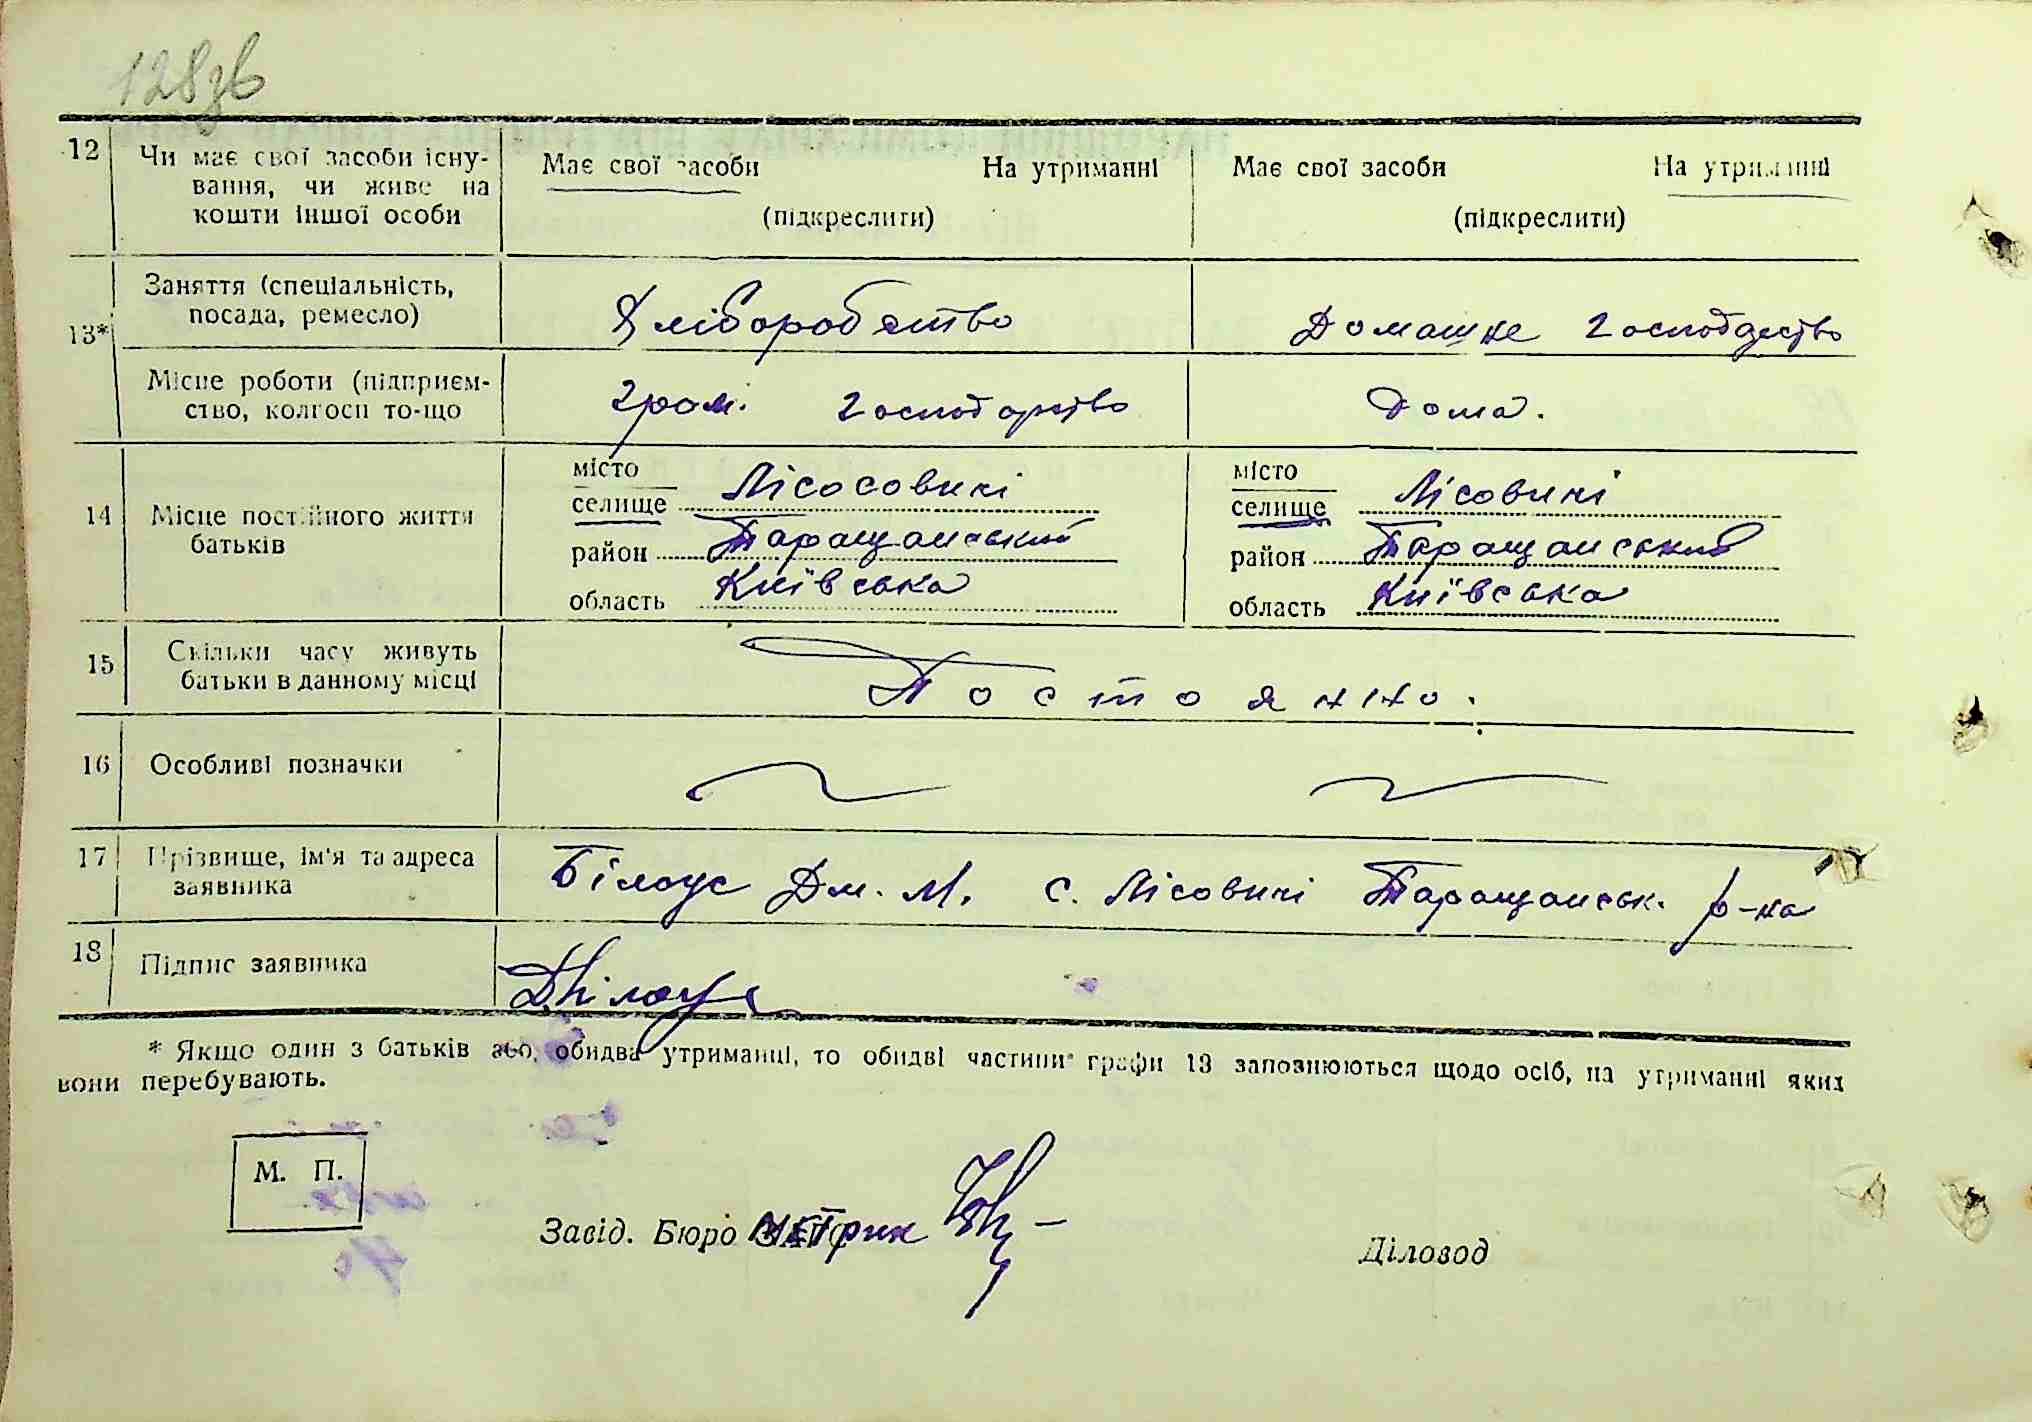 128зв
12 Чи має свої засоби існу- Має свої засоби На утриманні Має свої засоби На утриманні
вання, чи живе на
кошти іншої особи (підкреслити) (підкреслити)
13* Заняття (спеціальність,
посада, ремесло) Хлібороб ство Домашнє господарство
Місце роботи (підприєм- гром. господарство Дома.
ство, колгосп то-що
14 Місце постійного життя
батьків
місто
селище Лісосовичі
район Таращанський
область Київська
місто
селище Лісовичі
район Таращанський
область Київська
15 Скільки часу живуть
батьки в данному місці Постоянно.
16 Особливі позначки
17 Прізвище, ім'я та адреса
заявника Білоус Дм. М. с. Лісовичі Таращанськ. р-на
18 Підпис заявника Д.Білоус
* Якщо один з батьків або, обидва утриманці, то обидві частини графи 13 заповнюються щодо осіб, на утриманні яких
вони перебувають.
М. П.
Завід. Бюро Метрик
Діловод